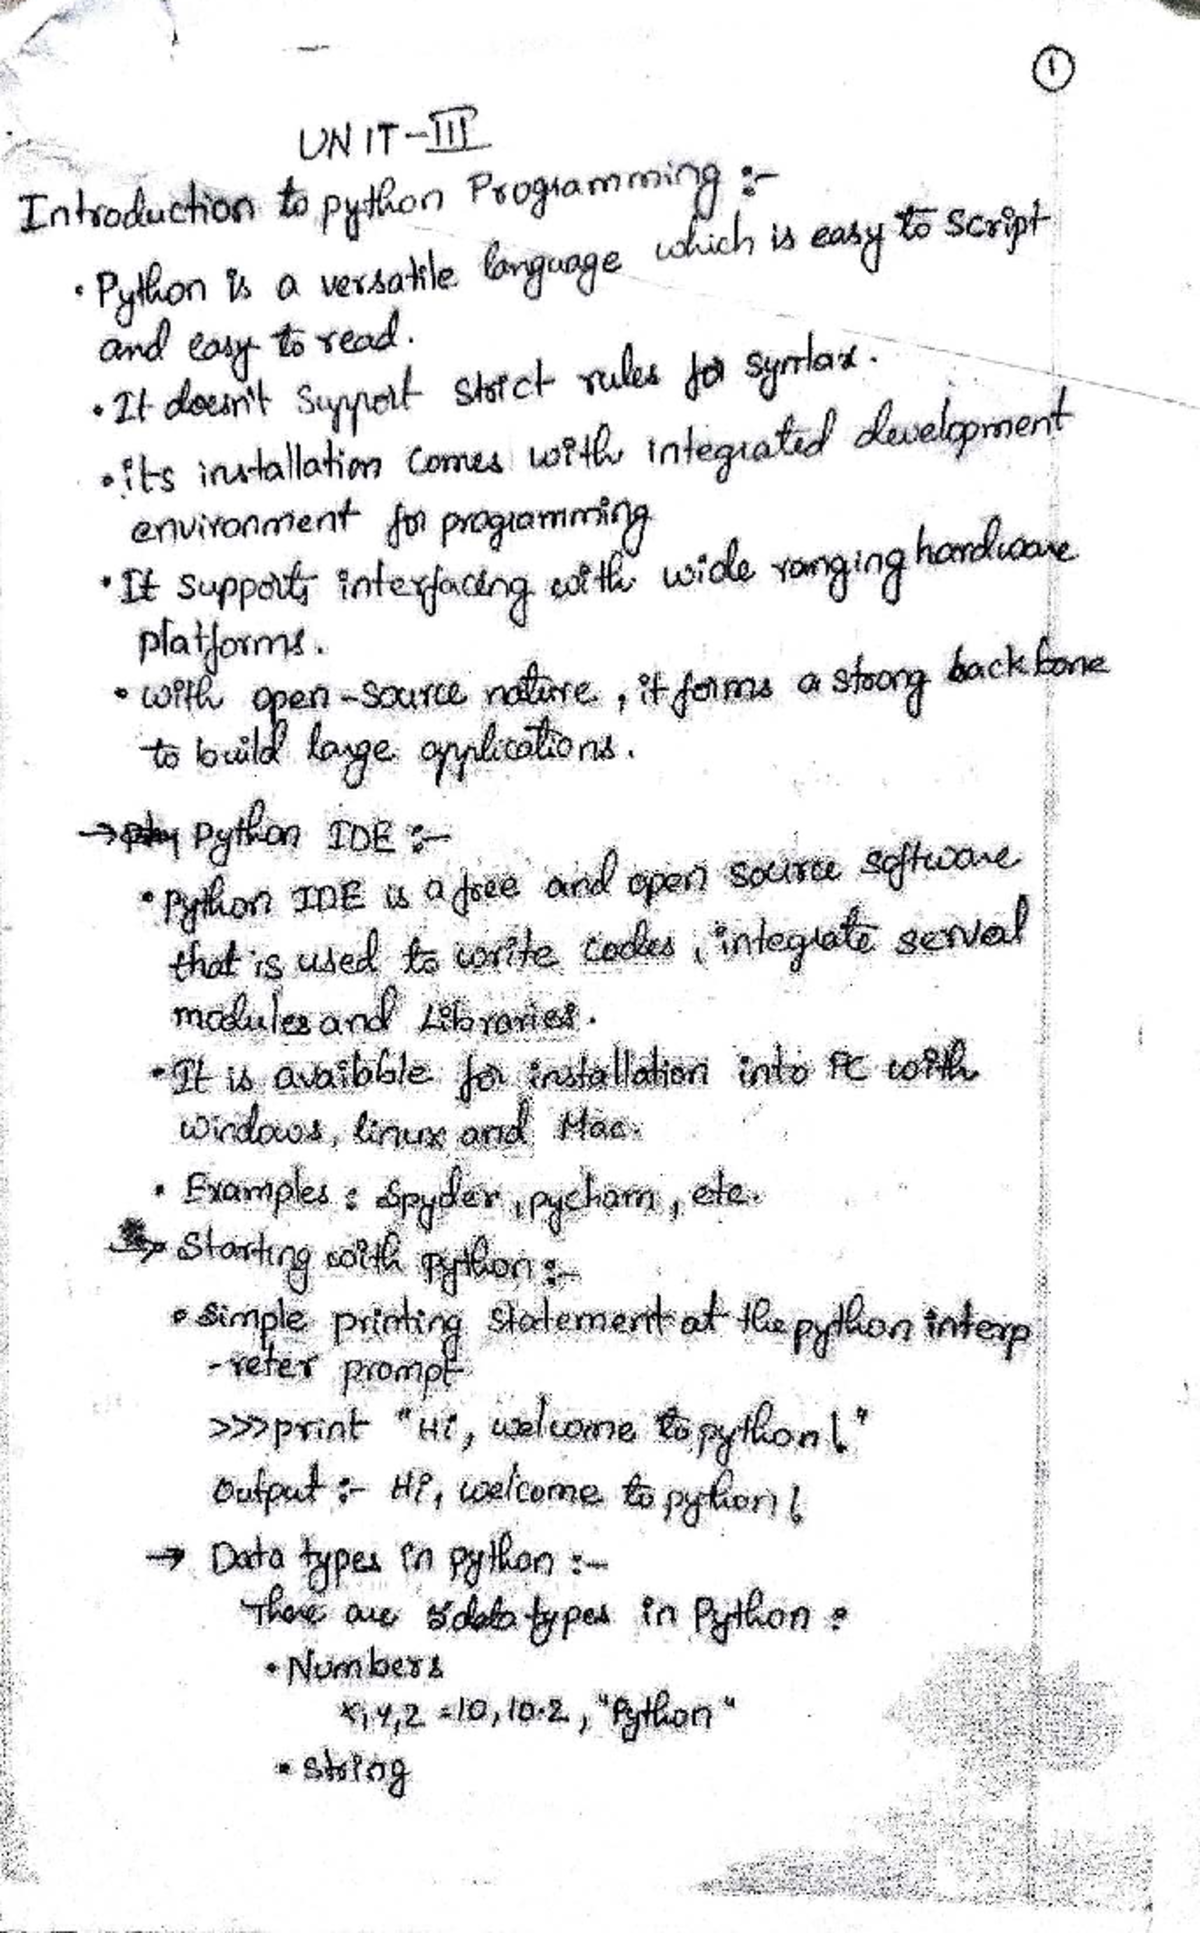 1
UNIT-III
Introduction to python Programming :-
• Python is a versatile language which is easy to script
and easy to read.
• It doesn't support strict rules for syntax.
• its installation comes with integrated development
environment for programming
• It supports interfacing with wide ranging hardware
platforms.
• with open-source nature, it forms a strong backbone
to build large applications.
→ Python IDE :-
• Python IDE is a free and open source software
that is used to write codes, integrate serval
modules and Libraries.
• It is available for installation into PC with
windows, linux and Mac.
• Examples : Spyder, pycham, etc.
→ Starting with python :-
• simple printing statement at the python interp
-reter prompt
>>>print "Hi, welcome to python!"
Output :- Hi, welcome to python!
→ Data types in python :-
There are 5 data types in Python :
• Numbers
x,y,z =10, 10.2, "Python"
• string